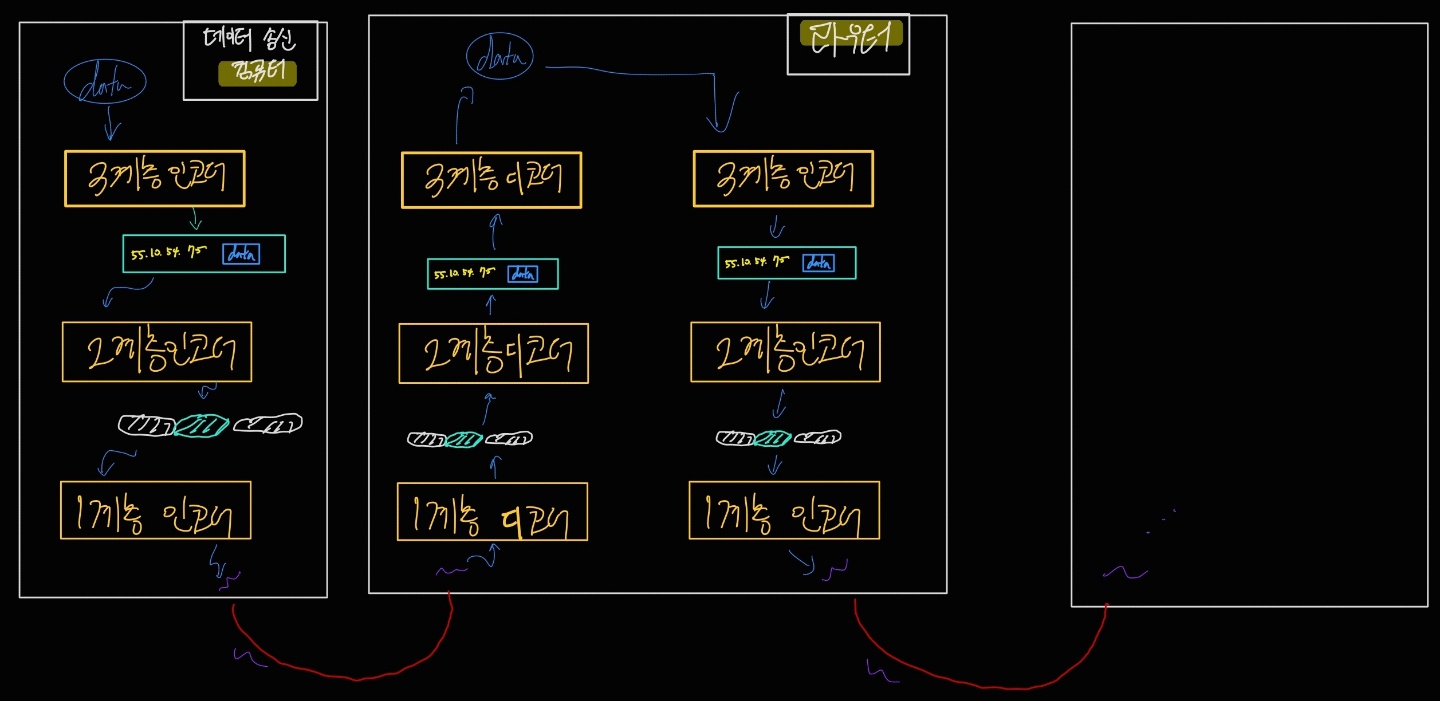 데이터 송신
컴퓨터
data
3계층 인코더
55.10.54.75 data
2계층인코더
1계층 인코더
라우터
data
3계층 디코더
55.10.54.75 data
2계층디코더
1계층 디코더
3계층 인코더
55.10.54.75 data
2계층인코더
1계층 인코더